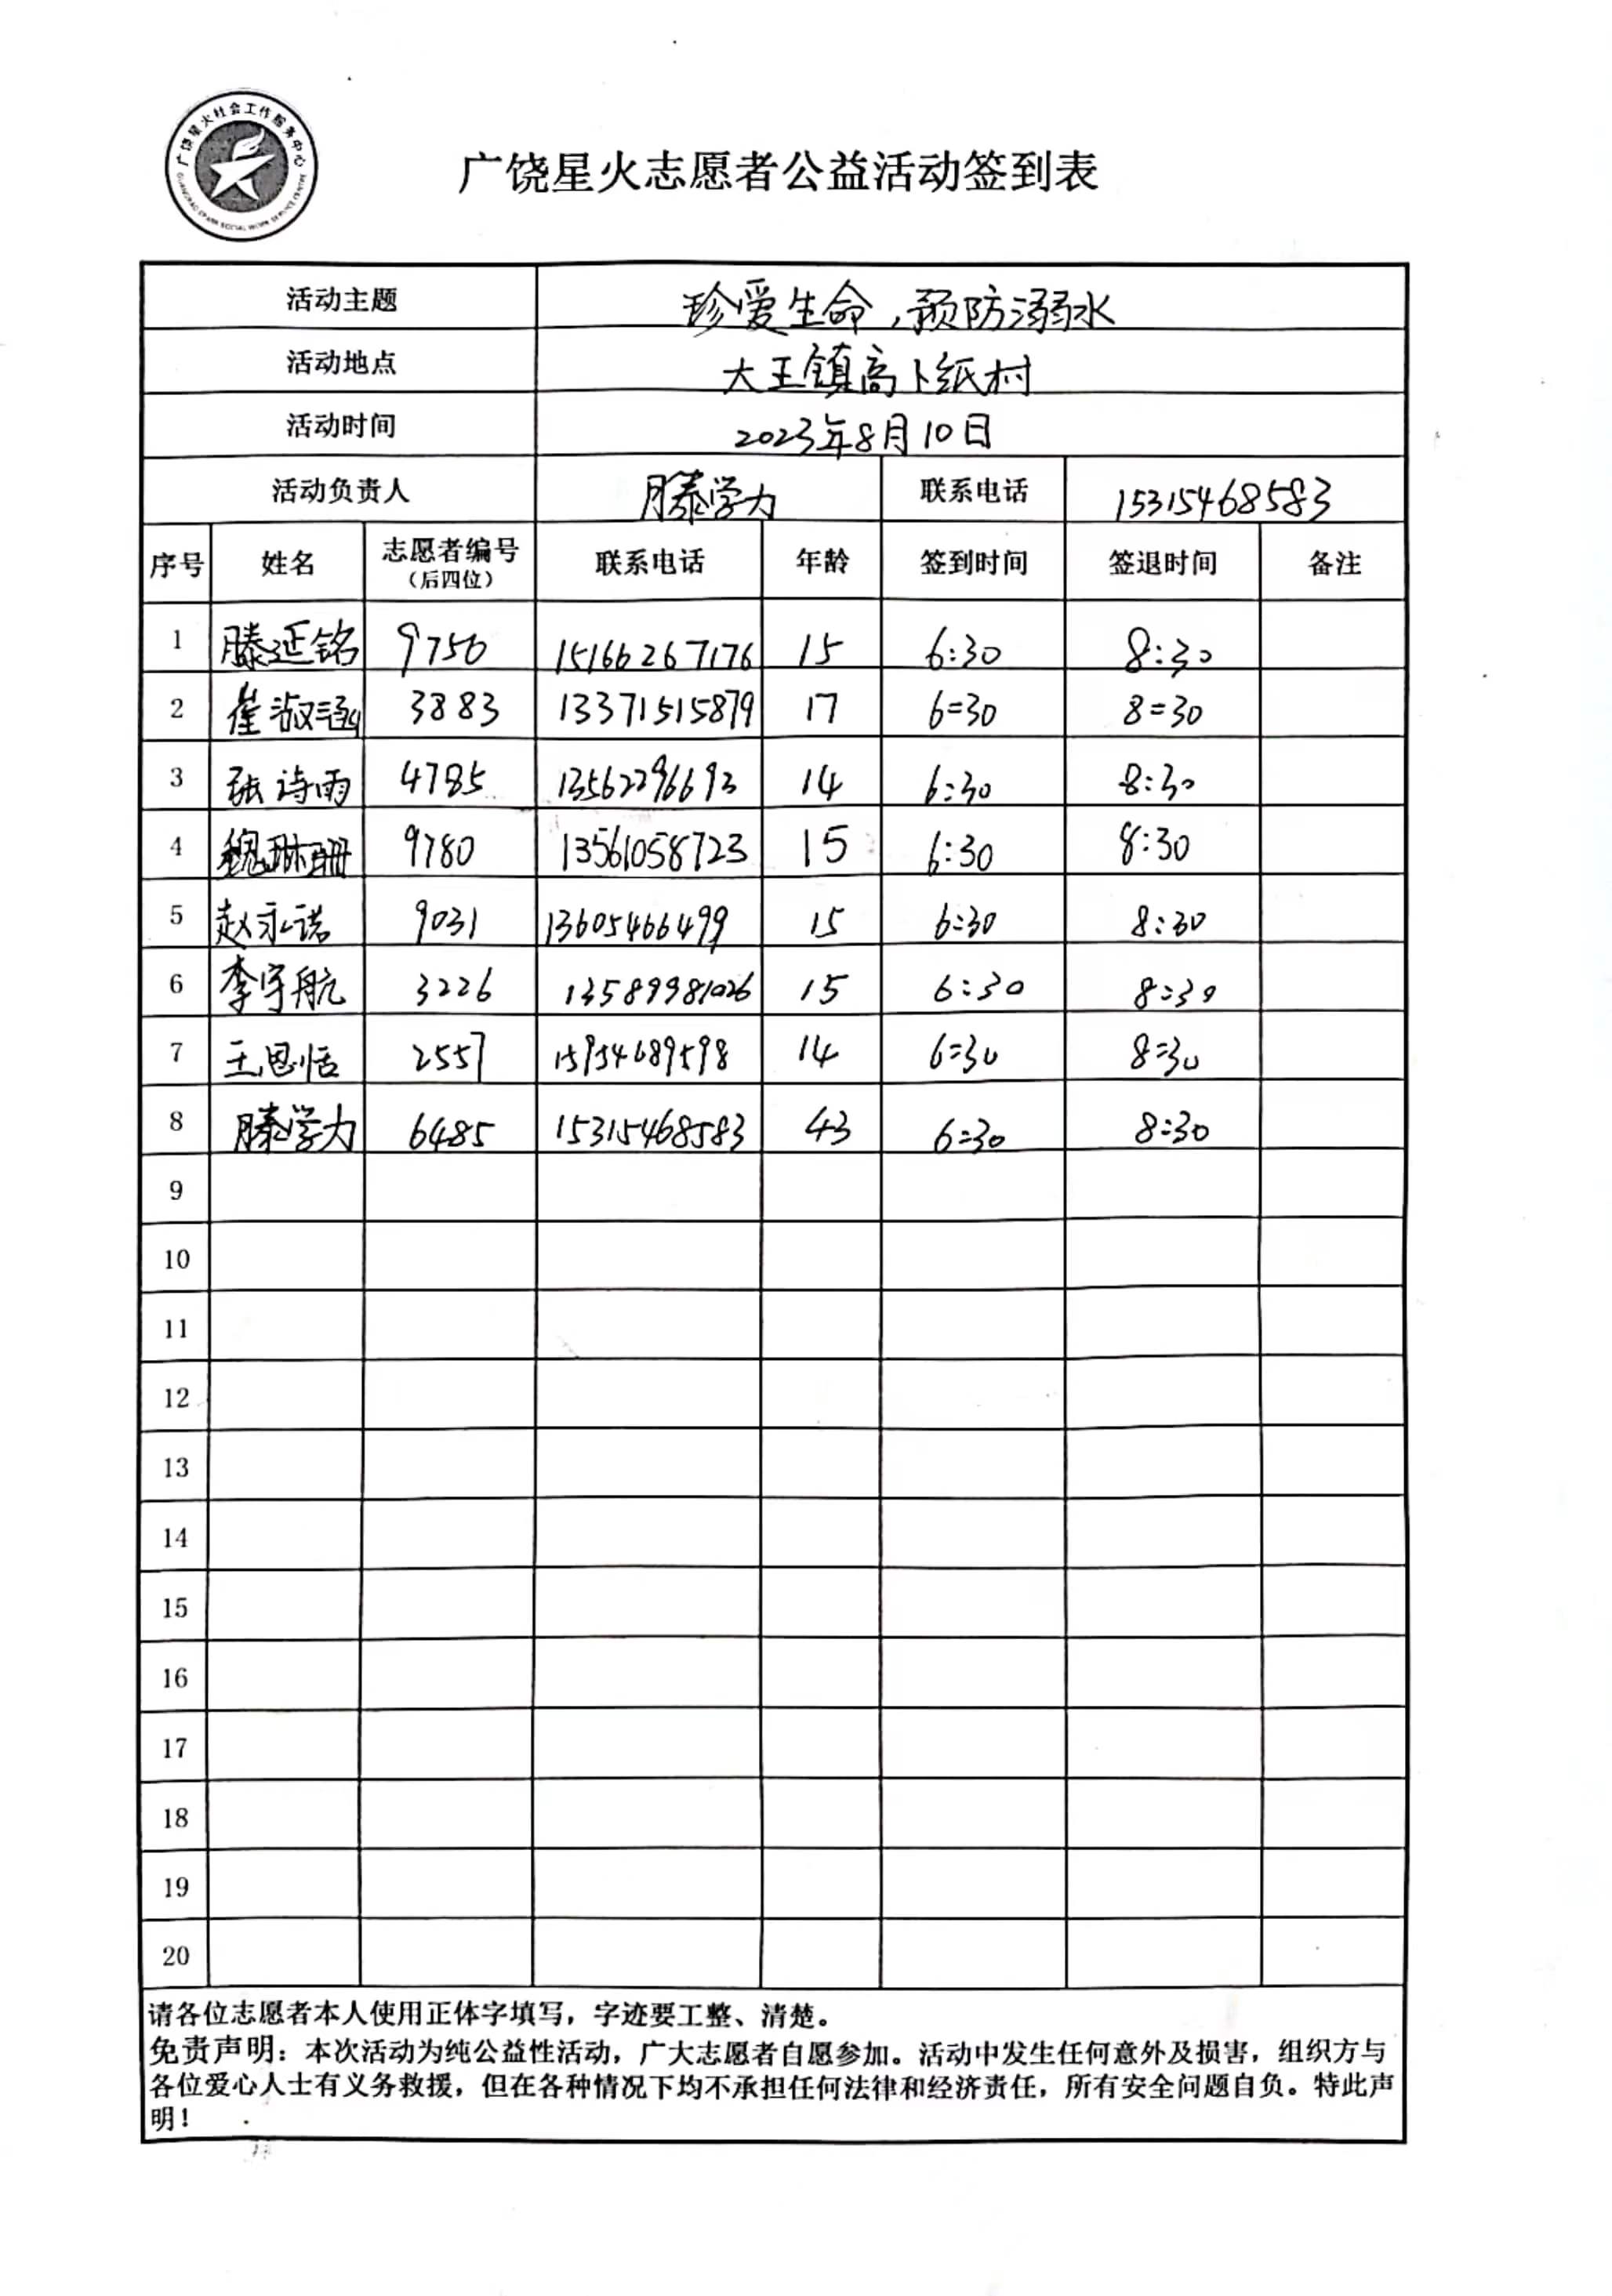 广饶星火社会工作服务中心
GUANGRAO SPARK SOCIAL WORK SERVICE CENTRE
广饶星火志愿者公益活动签到表
活动主题 珍爱生命，预防溺水
活动地点 大王镇高卜纸村
活动时间 2023年8月10日
活动负责人 滕学力 联系电话 15315468583
序号 姓名 志愿者编号（后四位） 联系电话 年龄 签到时间 签退时间 备注
1 滕延铭 9750 15166267176 15 6:30 8:30
2 崔淑涵 3883 13371515879 17 6:30 8:30
3 张诗雨 4785 13562296693 14 6:30 8:30
4 魏琳珊 9780 13561058723 15 6:30 8:30
5 赵永诺 9031 13605466499 15 6:30 8:30
6 李宇航 3226 13589981026 15 6:30 8:30
7 王思恬 2557 15954689598 14 6:30 8:30
8 滕学力 6485 15315468583 43 6:30 8:30
9
10
11
12
13
14
15
16
17
18
19
20
请各位志愿者本人使用正体字填写，字迹要工整、清楚。
免责声明：本次活动为纯公益性活动，广大志愿者自愿参加。活动中发生任何意外及损害，组织方与
各位爱心人士有义务救援，但在各种情况下均不承担任何法律和经济责任，所有安全问题自负。特此声
明！